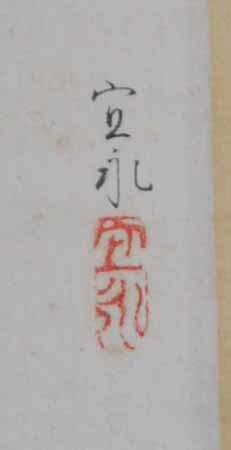 宜永
宜永